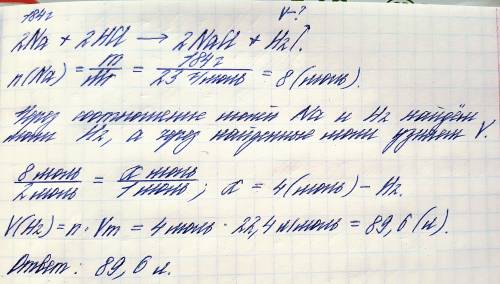 184 г V-?
2Na + 2HCl → 2NaCl + H₂↑.
n(Na) = m/Mr = 184 г/23 г/моль = 8 (моль).
Через соотношение молей Na и H₂ найдём
моли H₂, а через найденные моли узнаем V.
8 моль/2 моль = x моль/1 моль; x = 4 (моль) - H₂.
V(H₂) = n · Vm = 4 моль · 22,4 л/моль = 89,6 (л).
Ответ: 89,6 л.